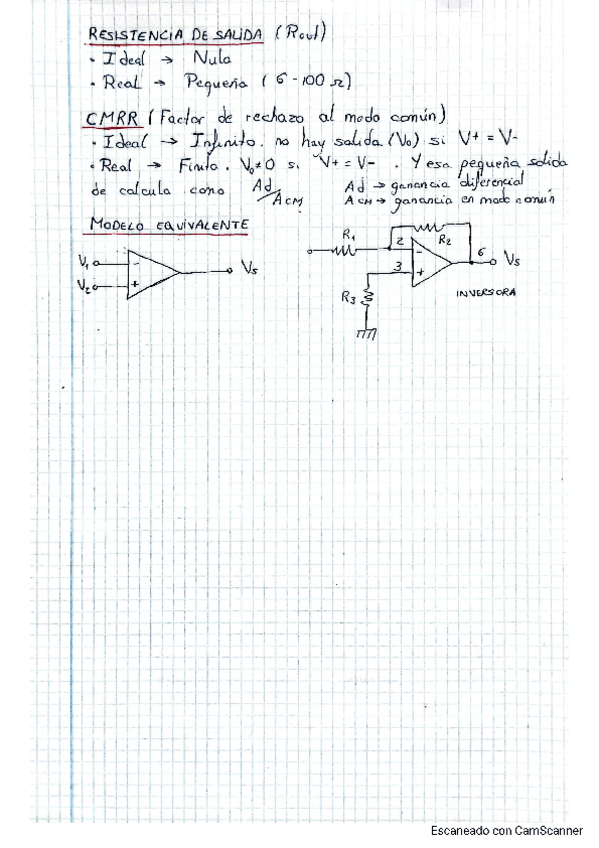 RESISTENCIA DE SALIDA (Rout)
· Ideal → Nula
· Real → Pequeña ( 6 - 100 Ω)
CMRR (Factor de rechazo al modo común)
· Ideal → Infinito. no hay salida (Vo) si V+ = V-
· Real → Finito. Vo≠0 si V+ = V- . Y esa pequeña salida
de calcula como Ad/ACM Ad → ganancia diferencial
ACM → ganancia en modo común
MODELO EQUIVALENTE
V1 - Vs
V2 +
R1 2 - R2 6 Vs
3 +
R3 INVERSORA
Escaneado con CamScanner